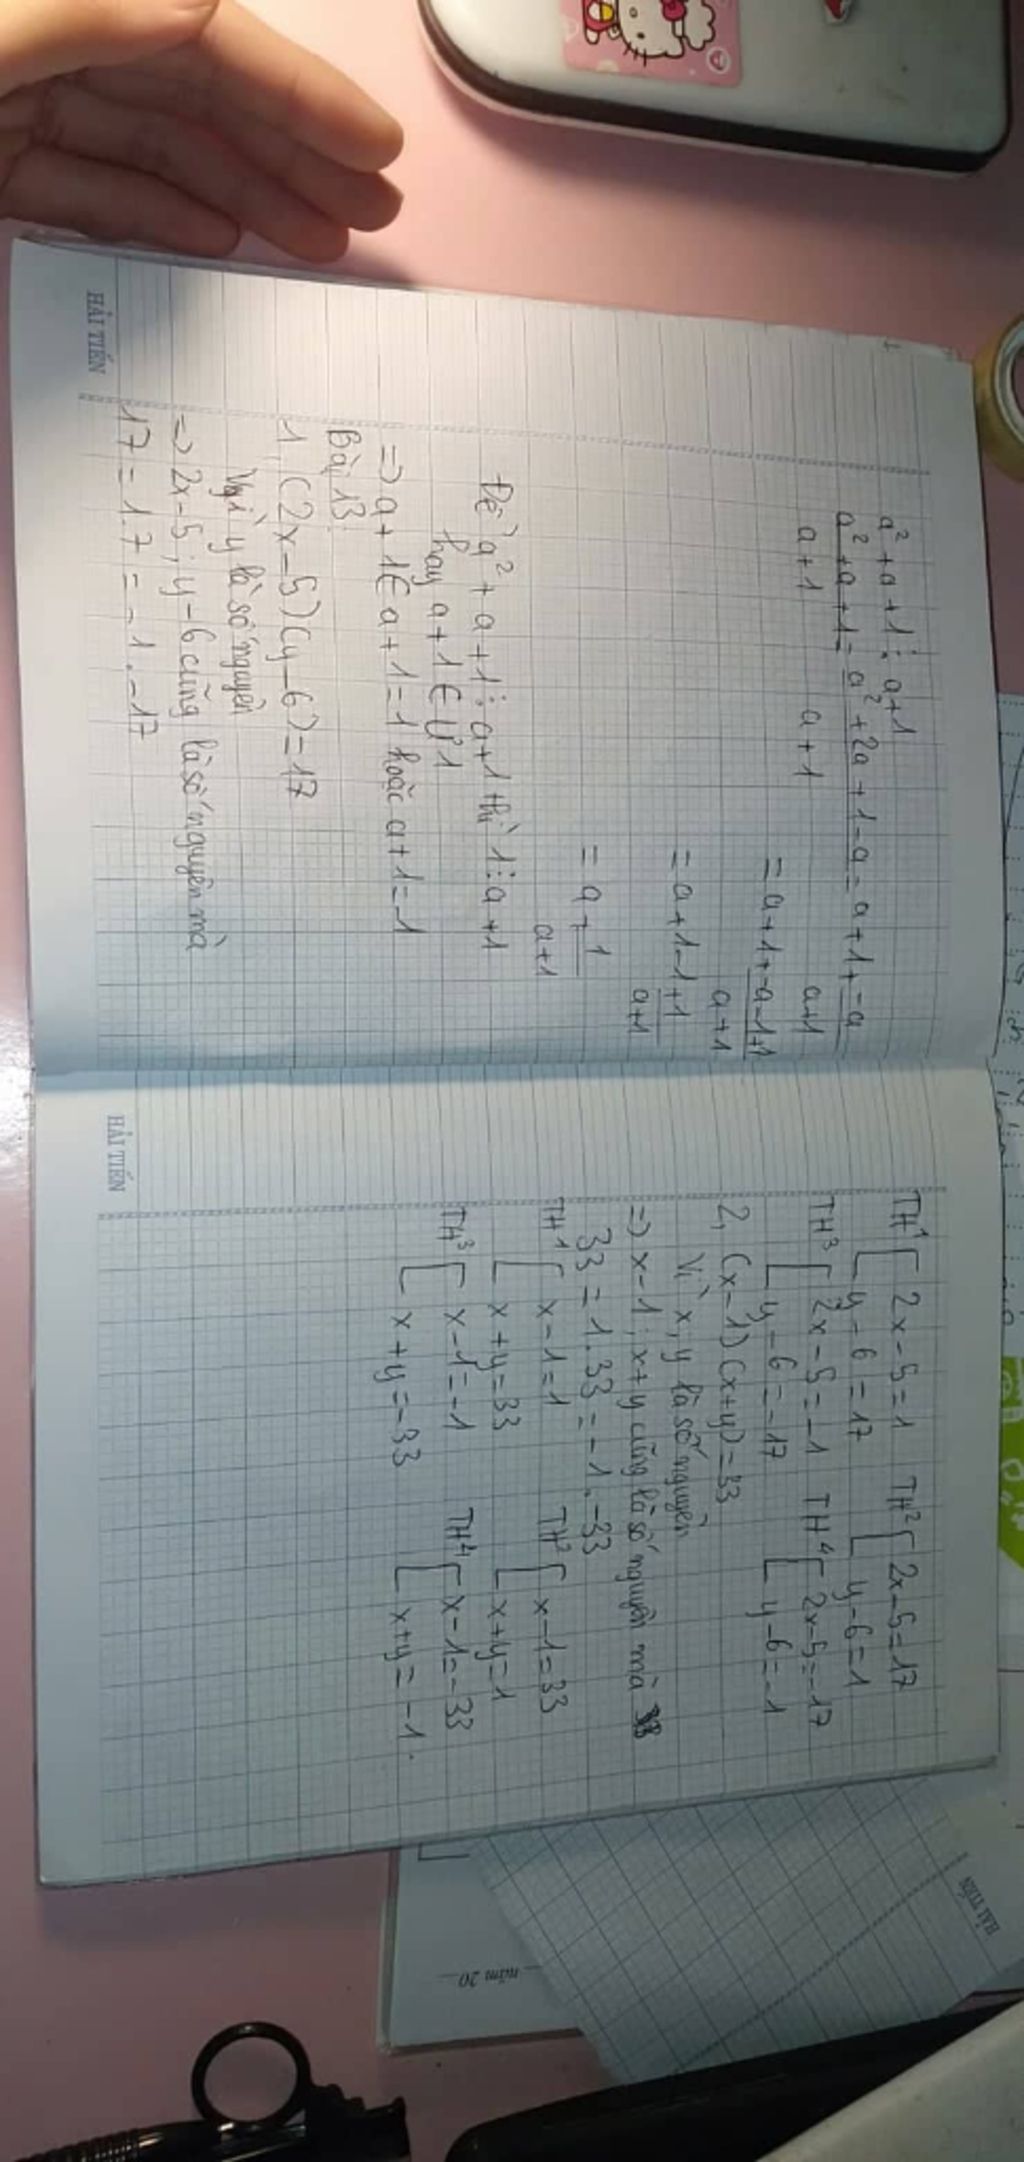 a² + a + 1 ⋮ a+1
a² + a + 1 = a² + 2a + 1 - a = a + 1 + -a
a + 1 a + 1 a+1
= a + 1 + -a-1+1
a+1
= a+1-1+1
a+1
= a + 1
a+1
Để a² + a + 1 ⋮ a+1 thì 1 ⋮ a+1
hay a + 1 ∈ Ư 1
=> a + 1 ∈ a + 1 = 1 hoặc a + 1 = -1
Bài 13
1, (2x - 5)(y - 6) = 17
y là số nguyên
=> 2x - 5 ; y - 6 cũng là số nguyên mà
17 = 1.17 = -1.-17
HẢI TIẾN
TH1 [ 2x - 5 = 1 TH2 [ 2x - 5 = 17
[ y - 6 = 17 [ y - 6 = 1
TH3 [ 2x - 5 = -1 TH4 [ 2x - 5 = -17
[ y - 6 = -17 [ y - 6 = -1
2, (x - 1)(x + y) = 33
Vì x ; y là số nguyên
=> x - 1 ; x + y cũng là số nguyên mà 33
33 = 1.33 = -1.-33
TH1 [ x - 1 = 1 TH2 [ x - 1 = 33
[ x + y = 33 [ x + y = 1
TH3 [ x - 1 = -1 TH4 [ x - 1 = -33
[ x + y = -33 [ x + y = -1.
HẢI TIẾN
HẢI TIẾN
năm 20